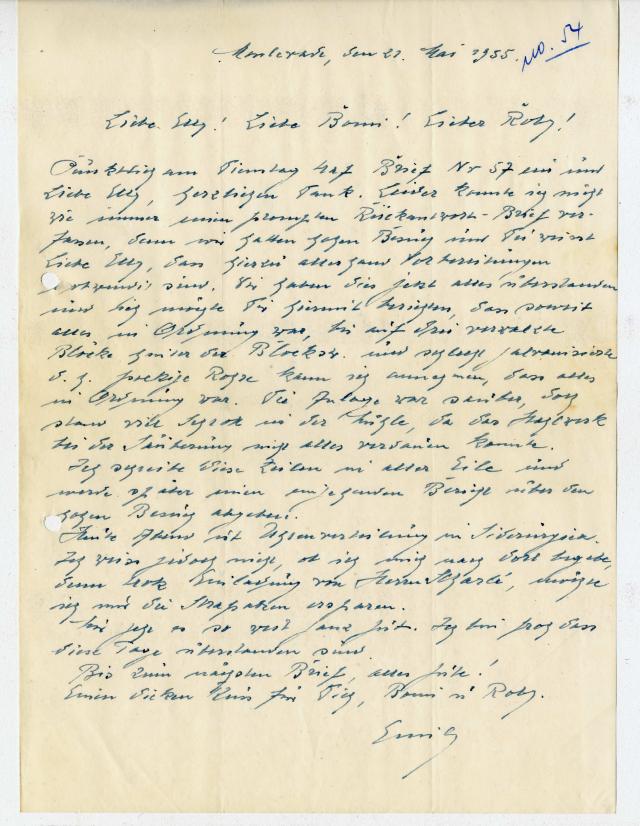 Monlevade, den 21. Mai 1955.
No. 54
Liebe Elly! Liebe Bomi! Lieber Roby!
Pünktlich am Dienstag traf Brief Nr 57 ein und
Liebe Elly, herzlichen Dank. Leider konnte ich nicht
wie immer einen prompten Rückantworts-Brief ver-
fassen, denn wir hatten hohen Besuch und Du weisst
Liebe Elly, dass hierzu allerhand Vorbereitungen
notwendig sind. Wir haben dies jetzt alles überstanden
und ich möchte Dir hiermit berichten, dass soweit
alles in Ordnung war, bis auf drei verwalzte
Blöcke hinter der Blockstr. und schlecht galvanisierte
d. h. fleckige Rohre kann ich annehmen, dass alles
in Ordnung war. Die Anlage war sauber, doch
stand viel Schrott in der Halle, da das Stahlwerk
bei der Säuberung nicht alles verdauen konnte.
Ich schreibe diese Zeilen in aller Eile und
werde später einen eingehenden Bericht über den
hohen Besuch abgeben.
Heute Abend ist Uhrenverteilung in Siderurgica.
Ich weiss jedoch nicht, ob ich mich nach dort begebe,
denn trotz Einladung von Herrn Scharlé, möchte
ich mir die Strapazen ersparen.
Mir geht es so weit ganz gut. Ich bin froh dass
diese Tage überstanden sind.
Bis zum nächsten Brief, alles Gute!
Einen dicken Kuss für Dich, Bomi u Roby.
Emil